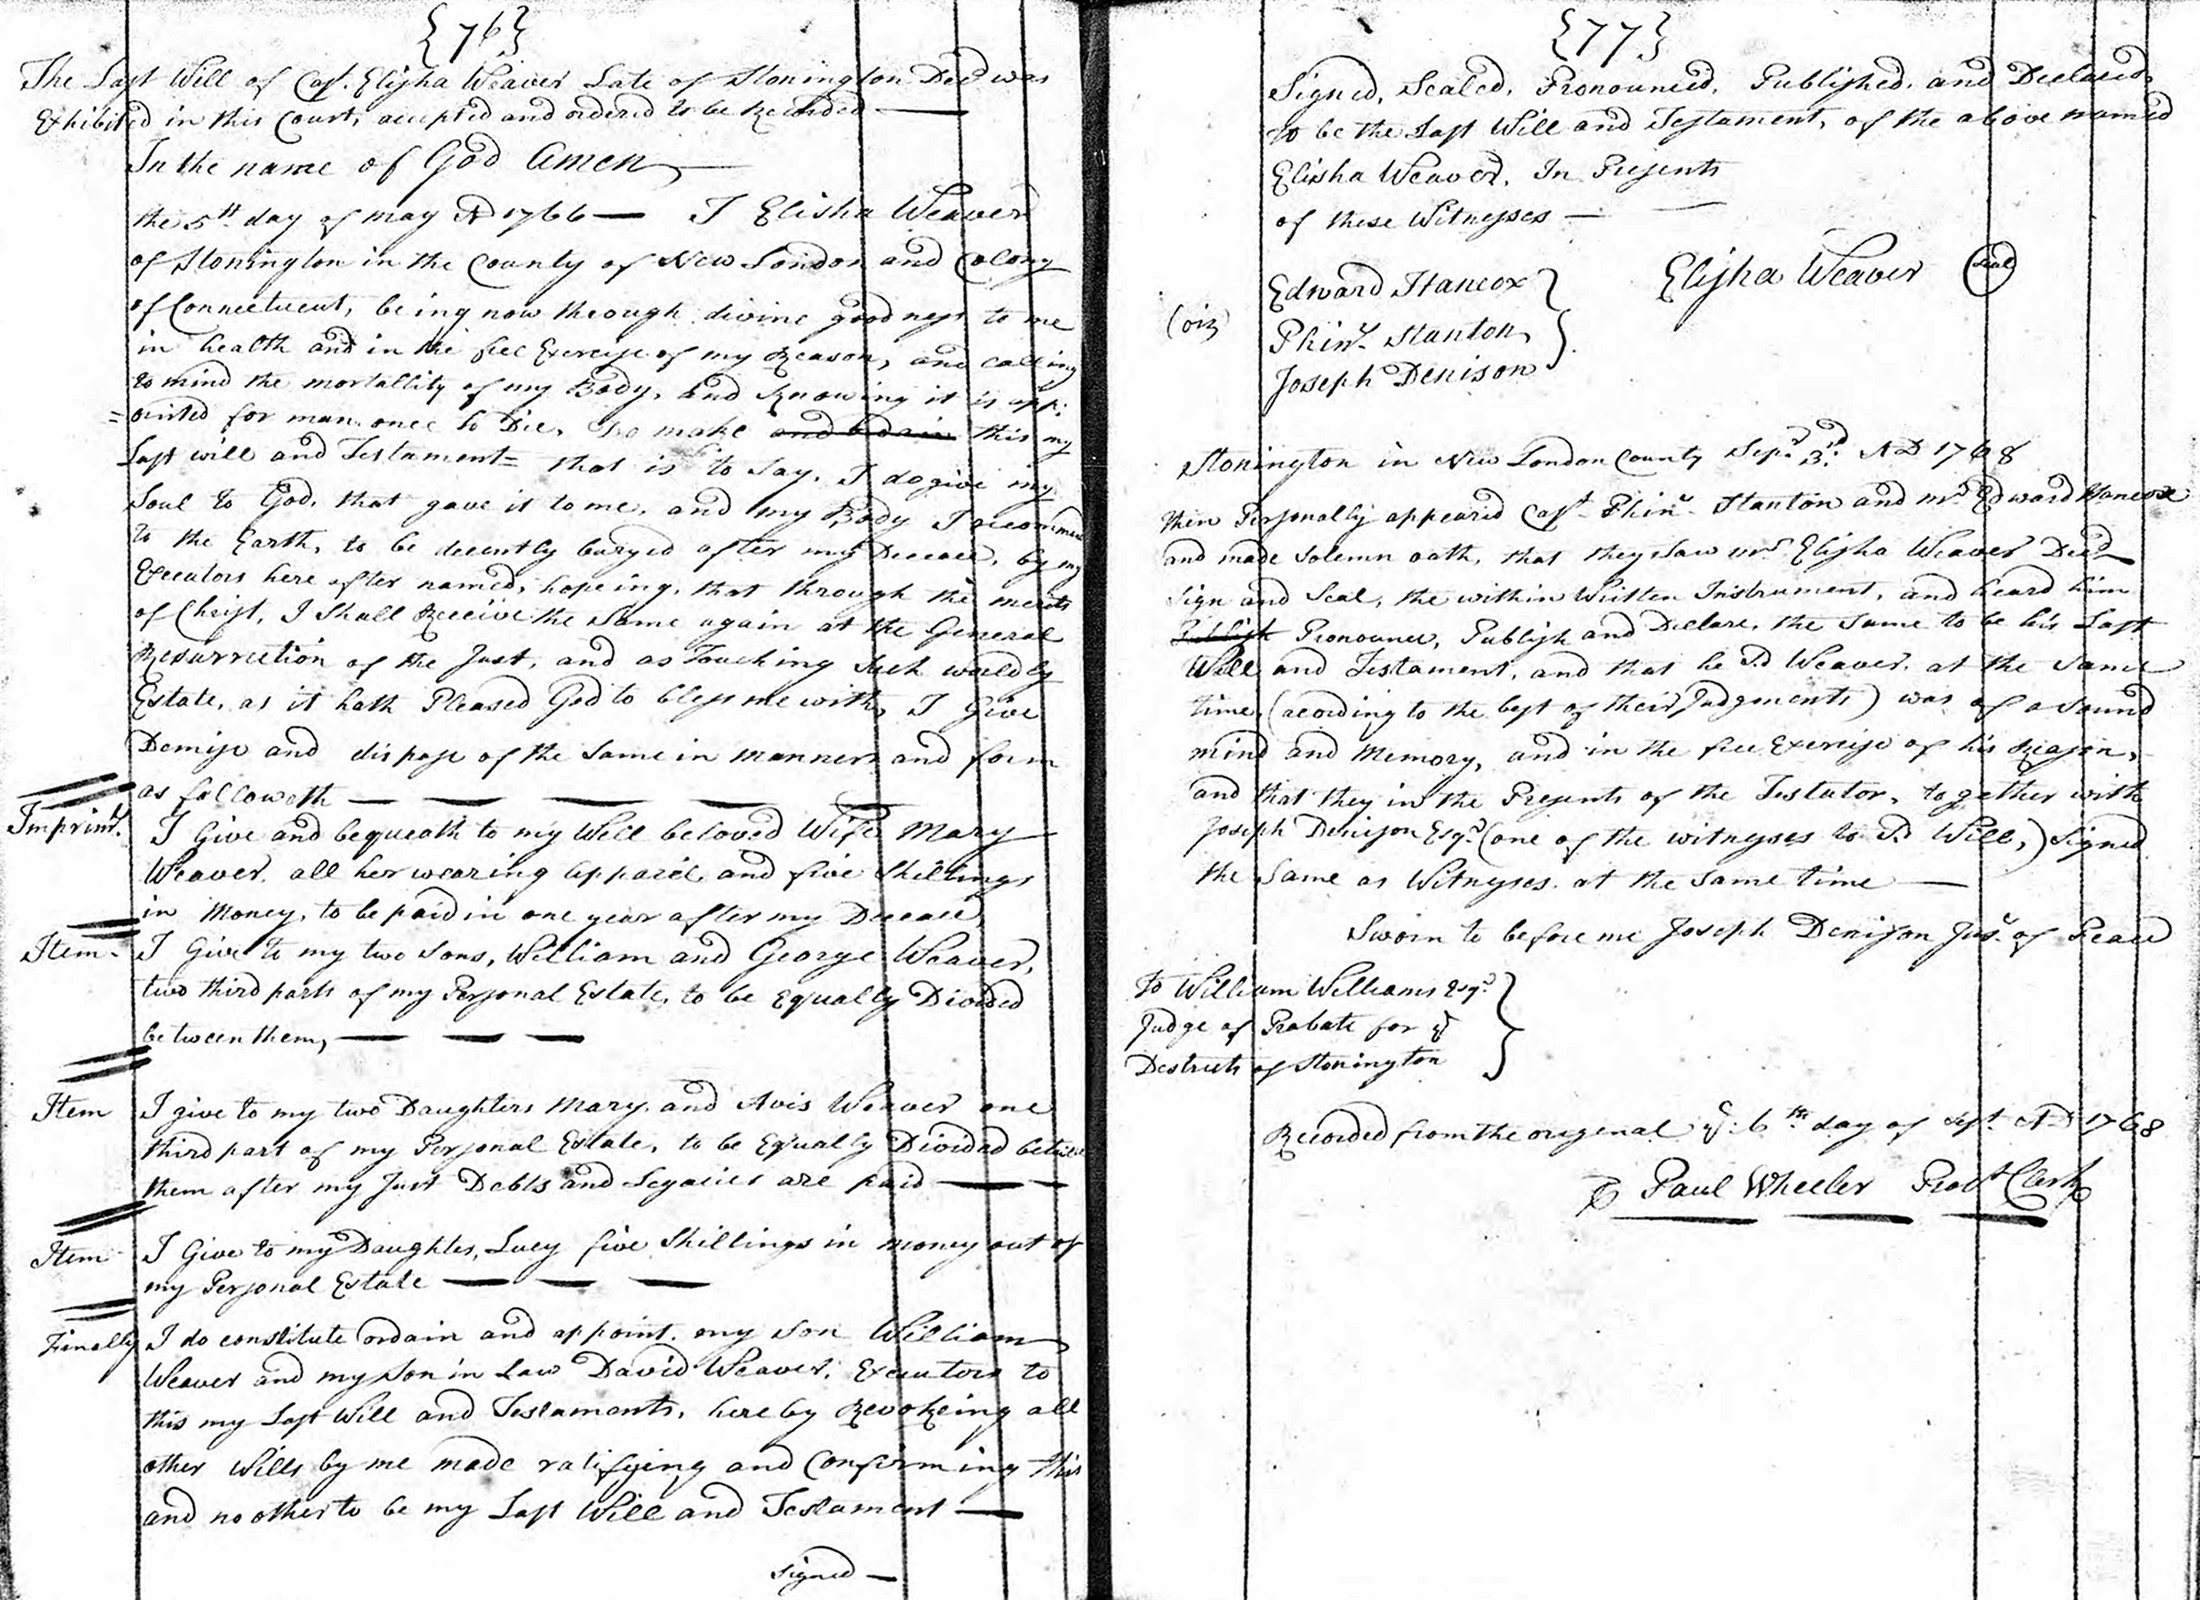 {76}
The Last Will of Capt. Elisha Weaver Late of Stonington Decd was
Exhibited in this Court, accepted and ordered to be Recorded
In the name of God Amen
the 5th day of may AD 1766 — I Elisha Weaver
of Stonington in the County of New London and Colony
of Connecticut, being now through divine goodness to me
in health and in the free Exercise of my Reason, and calling
to mind the mortallity of my Body, and Knowing it is app:
=ointed for man once to Die, do make and ordain this my
Last will and Testament= that is to say, I do give my
Soul to God, that gave it to me, and my Body I recommend
to the Earth, to be decently buryed after my Decease, by my
Executors here after named, hopeing, that through the merits
of Christ, I Shall Receive the Same again at the General
Resurrection of the Just, and as Touching Such worldly
Estate, as it hath Pleased God to bless me with, I Give
Demise and dispose of the Same in manner and form
as followeth
Imprims. I Give and bequeath to my Well beloved Wife Mary
Weaver all her wearing apparel, and five Shillings
in Money, to be paid in one year after my Decease,
Item- I Give to my two Sons, William and George Weaver,
two third parts of my Personal Estate, to be Equally Divided
between them,
Item I give to my two Daughters Mary and Avis Weaver one
third part of my Personal Estate, to be Equally Divided between
them after my Just Debts and Legacies are paid
Item I Give to my Daughter, Lucy five Shillings in money out of
my Personal Estate
Finally I do constitute ordain and appoint my Son William
Weaver and my Son in Law David Weaver, Executors to
this my Last Will and Testament, hereby Revokeing all
other Wills by me made ratifying and Confirming this
and no other to be my Last Will and Testament
Signed
{77}
Signed, Sealed, Pronounced, Published, and Declared,
to be the Last Will and Testament, of the above named
Elisha Weaver, In Presents
of these Witnesses
Elisha Weaver (Seal)
Edward Hancox
(viz) Phins. Stanton
Joseph Denison
Stonington in New London County Sept. 3d. AD 1768
then Personally appeared Capt. Phins. Stanton and mr. Edward Hancox
and made Solemn oath, that they Saw mr. Elisha Weaver Decd
Sign and Seal, the within Written Instrument, and heard him
Publish Pronounce, Publish and Declare, the Same to be his Last
Will and Testament, and that he Sd Weaver, at the Same
time, (acording to the best of their Judgments) was of a Sound
mind and Memory, and in the free Exercise of his Reason,
and that they in the Presents of the Testator, together with
Joseph Denison Esqr. (one of the witnesses to Sd Will,) Signed
the Same as Witnesses at the Same time
Sworn to before me Joseph Denison Jus. of Peace
To William Williams Esqr.
Judge of Probate for ye
Destrict of Stonington
Recorded from the original ye: 6th day of Sept. AD 1768
Paul Wheeler Probt Clerk